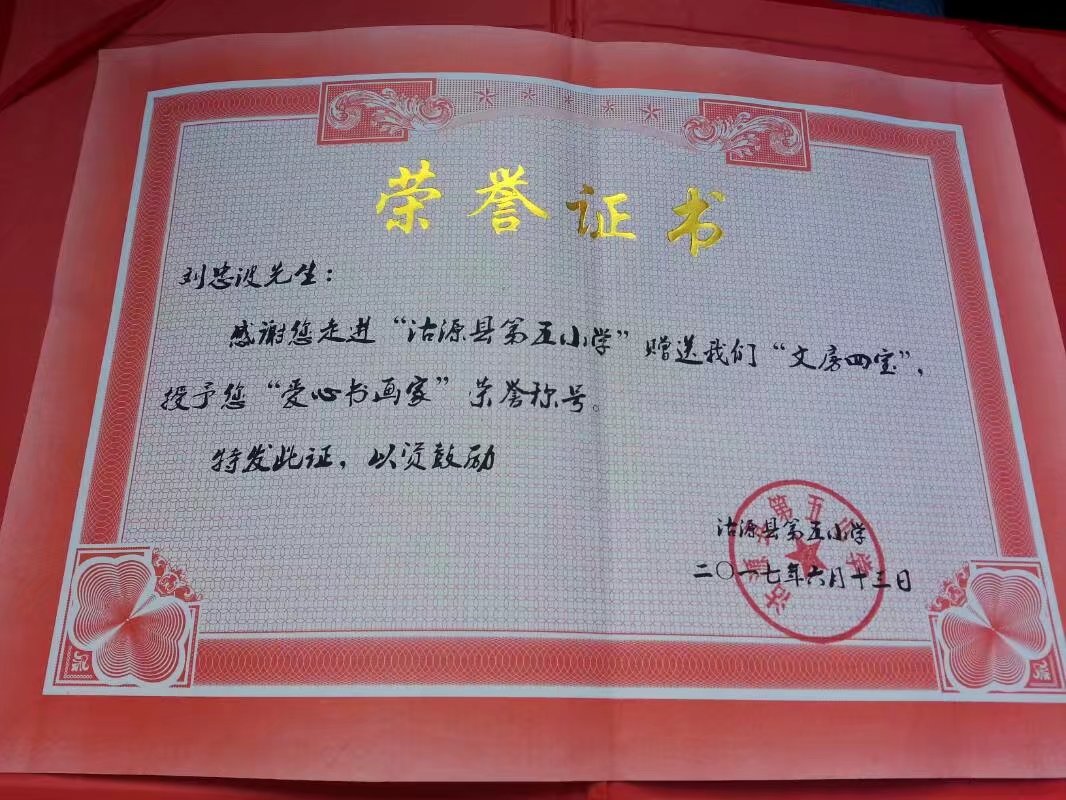 荣誉证书
刘忠波先生：
感谢您走进“沽源县第五小学”赠送我们“文房四宝”，
授予您“爱心书画家”荣誉称号。
特发此证，以资鼓励
沽源县第五小学
二〇一七年六月十三日
沽源县第五小学